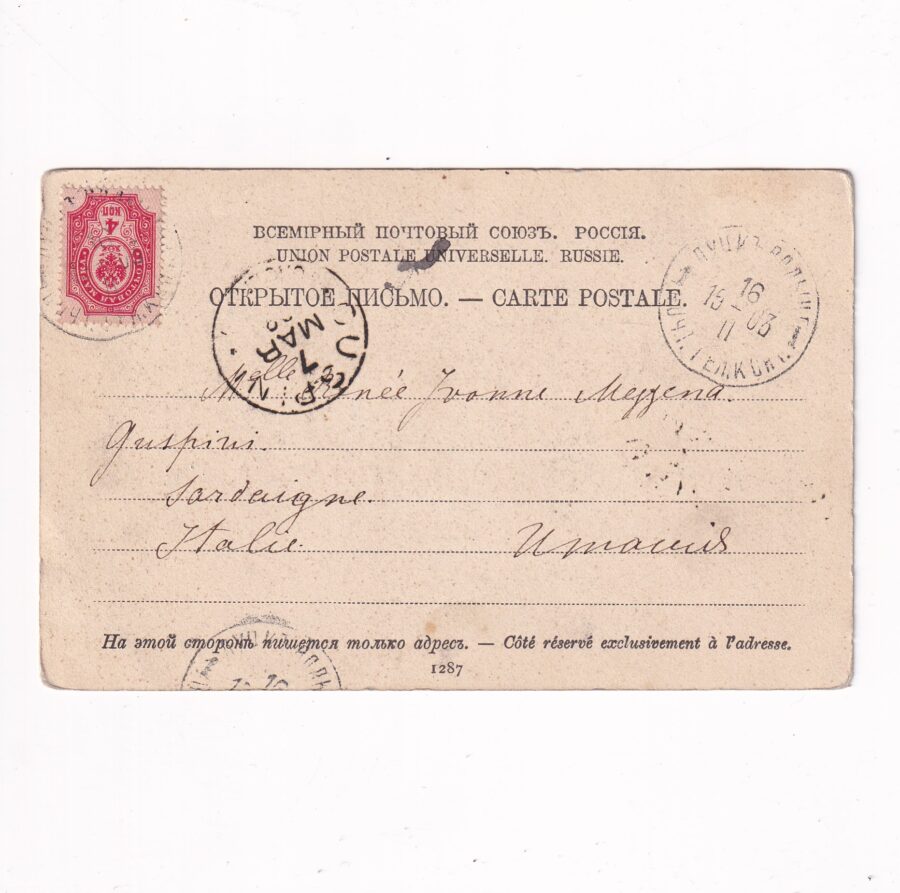 4 КОП
ПОЧТОВАЯ МАРКА
ВСЕМІРНЫЙ ПОЧТОВЫЙ СОЮЗЪ. РОССІЯ.
UNION POSTALE UNIVERSELLE. RUSSIE.
ОТКРЫТОЕ ПИСЬМО. — CARTE POSTALE.
MAR
7
ЛУЦКЪ ВОЛЫН
16
19 – 03
11
Melle Renée Yvonne Mezzena.
Guspini.
Sardaigne.
Italie. Италія
На этой сторонѣ пишется только адресъ. — Côté réservé exclusivement à l'adresse.
1287
16